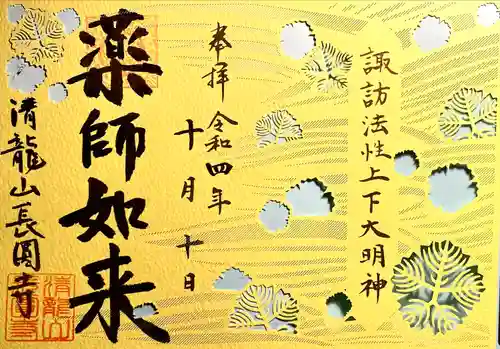 諏訪法性上下大明神
奉拝
令和四年
十月十日
薬師如来
清龍山長圓寺